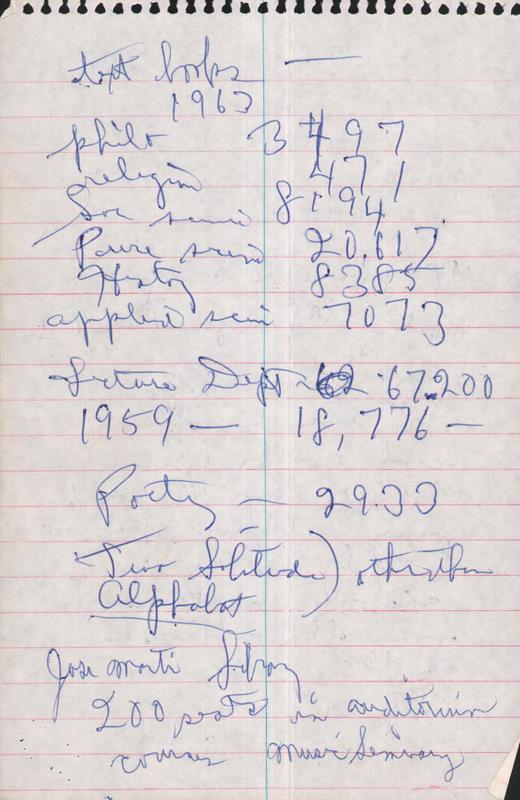 text books —
1963
philo 3497
religion 471
Soc scienc 8194
Pure scien 20.617
History 8385
applied scien 7073
Lecture Dept - 67.200
1959 — 18,776 —
Poetry — 2933
Two Solitudes) other than
Alphabet
Jose Marti Library
200 seats in auditorium
courses music Seminary